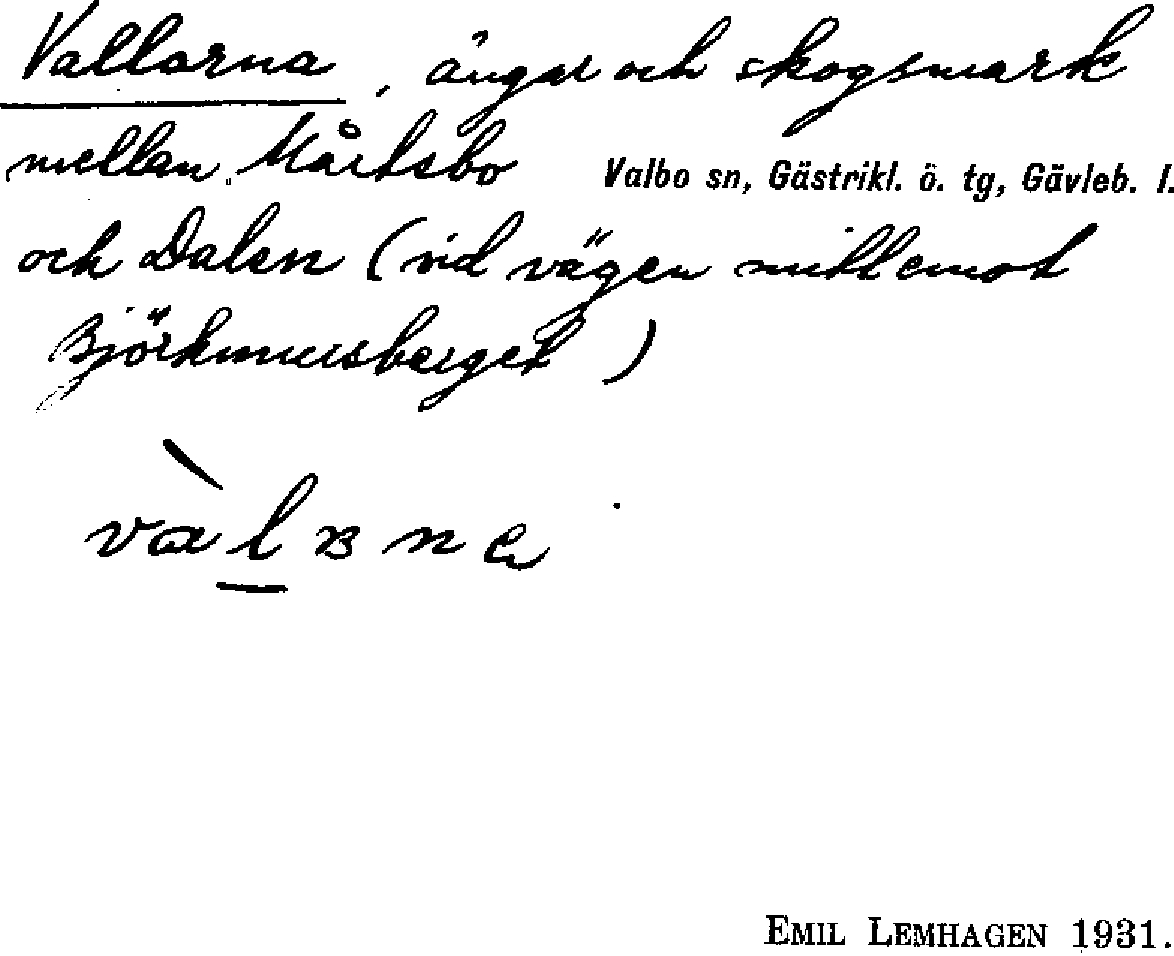 Vallarna, ängar och skogsmark
mellan Mårtsbo Valbo sn, Gästrikl. ö. tg, Gävleb. l.
och Dalen (vid vägen mitt emot
Björkmursberget)
EMIL LEMHAGEN 1931.